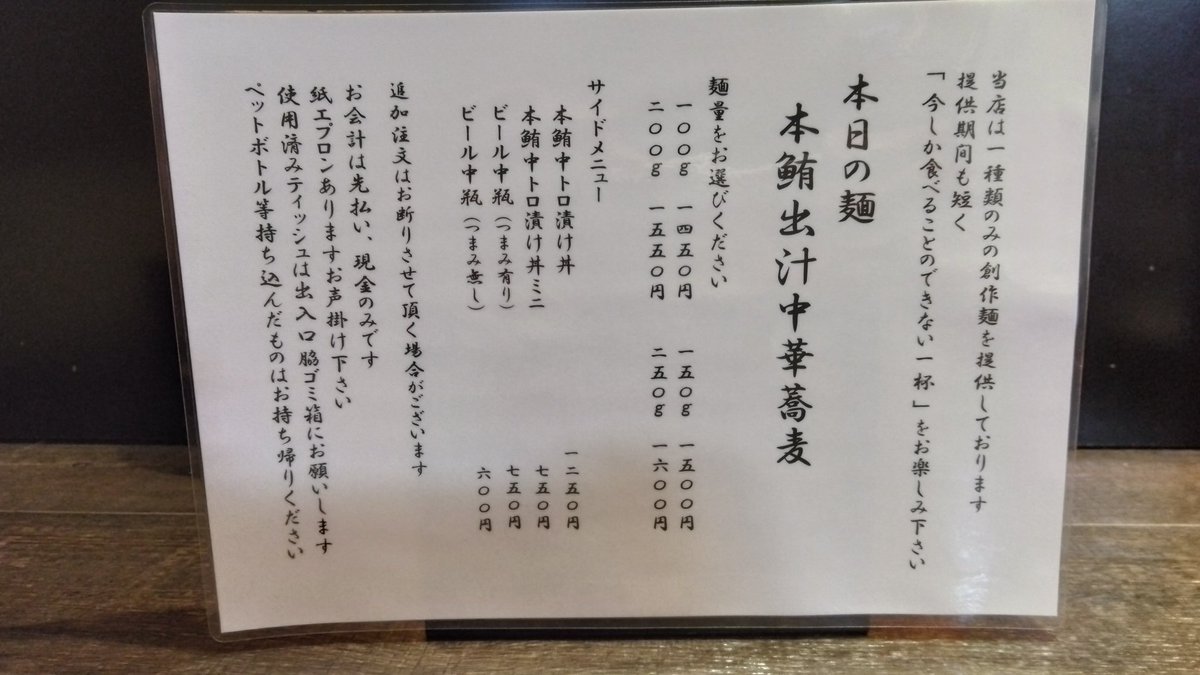 当店は一種類のみの創作麺を提供しております
提供期間も短く
「今しか食べることのできない一杯」をお楽しみ下さい
本日の麺
本鮪出汁中華蕎麦
麺量をお選びください
一〇〇g 一四五〇円 一五〇g 一五〇〇円
二〇〇g 一五五〇円 二五〇g 一六〇〇円
サイドメニュー
本鮪中トロ漬け丼 一二五〇円
本鮪中トロ漬け丼ミニ 七五〇円
ビール中瓶(つまみ有り) 七五〇円
ビール中瓶(つまみ無し) 六〇〇円
追加注文はお断りさせて頂く場合がございます
お会計は先払い、現金のみです
紙エプロンありますお声掛け下さい
使用済みティッシュは出入口脇ゴミ箱にお願いします
ペットボトル等持ち込んだものはお持ち帰りください